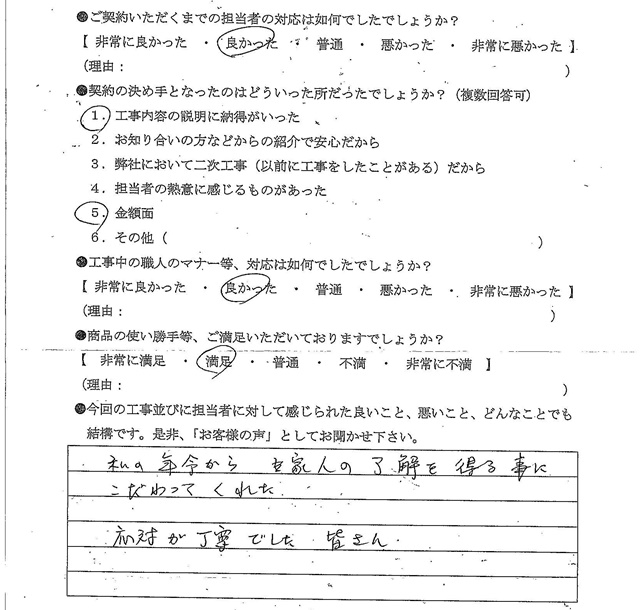 ●ご契約いただくまでの担当者の対応は如何でしたでしょうか？
【 非常に良かった ・ 良かった ・ 普通 ・ 悪かった ・ 非常に悪かった 】
（理由： ）
●契約の決め手となったのはどういった所だったでしょうか？（複数回答可）
1．工事内容の説明に納得がいった
2．お知り合いの方などからの紹介で安心だから
3．弊社において二次工事（以前に工事をしたことがある）だから
4．担当者の熱意に感じるものがあった
5．金額面
6．その他（ ）
●工事中の職人のマナー等、対応は如何でしたでしょうか？
【 非常に良かった ・ 良かった ・ 普通 ・ 悪かった ・ 非常に悪かった 】
（理由： ）
●商品の使い勝手等、ご満足いただいておりますでしょうか？
【 非常に満足 ・ 満足 ・ 普通 ・ 不満 ・ 非常に不満 】
（理由： ）
●今回の工事並びに担当者に対して感じられた良いこと、悪いこと、どんなことでも
結構です。是非、「お客様の声」としてお聞かせ下さい。
私の年令から 家人の了解を得る事に
こだわってくれた
応対が丁寧でした 皆さん.